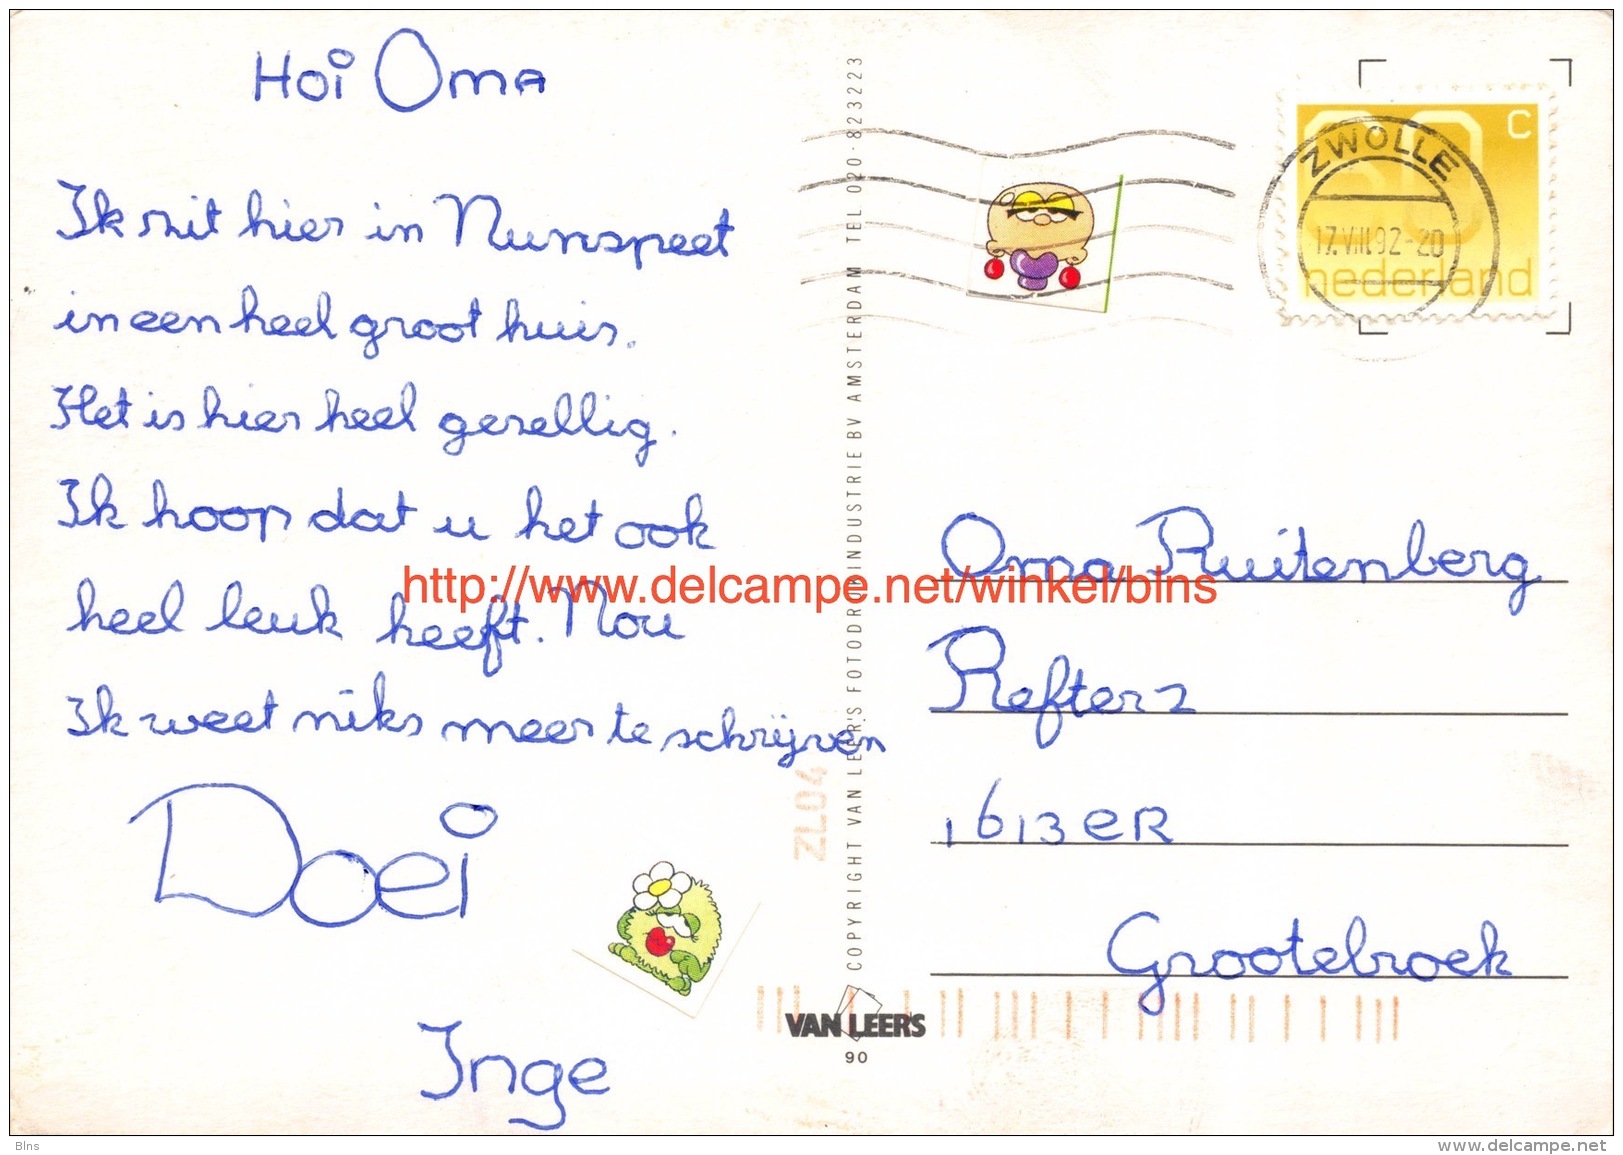 Hoi Oma
Ik zit hier in Nunspeet
in een heel groot huis.
Het is hier heel gezellig.
Ik hoop dat u het ook
heel leuk heeft. Nou
Ik weet niks meer te schrijven
Doei
Inge
COPYRIGHT VAN LEER'S FOTODRUKINDUSTRIE BV AMSTERDAM TEL 020-823223
ZL04
VAN LEERS
90
60 c
nederland
ZWOLLE
17.VIII.92-20
Oma Ruitenberg
Refter 2
1613 ER
Grootebroek
http://www.delcampe.net/winkel/blns
Blns
www.delcampe.net